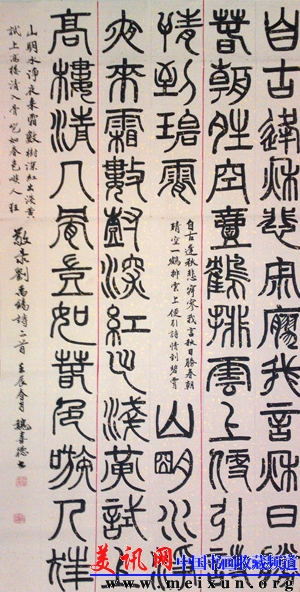 自古逢秌悲寂寥我言秌日勝
萅朝晴空壹鶴排雲上便引詩
情到碧霄
自古逢秋悲寂寥我言秋日勝春朝
晴空一鶴排雲上便引詩情到碧霄
山明水淨
夜來霜數樹深紅出淺黃試上
高樓清入骨豈如萅色嗾人狂
山明水淨夜來霜數樹深紅出淺黃
試上高樓清入骨豈如春色嗾人狂
敬录劉禹錫詩二首 壬辰春月 魏喜德書
美讯网 中国书画收藏频道
www.meixun.org